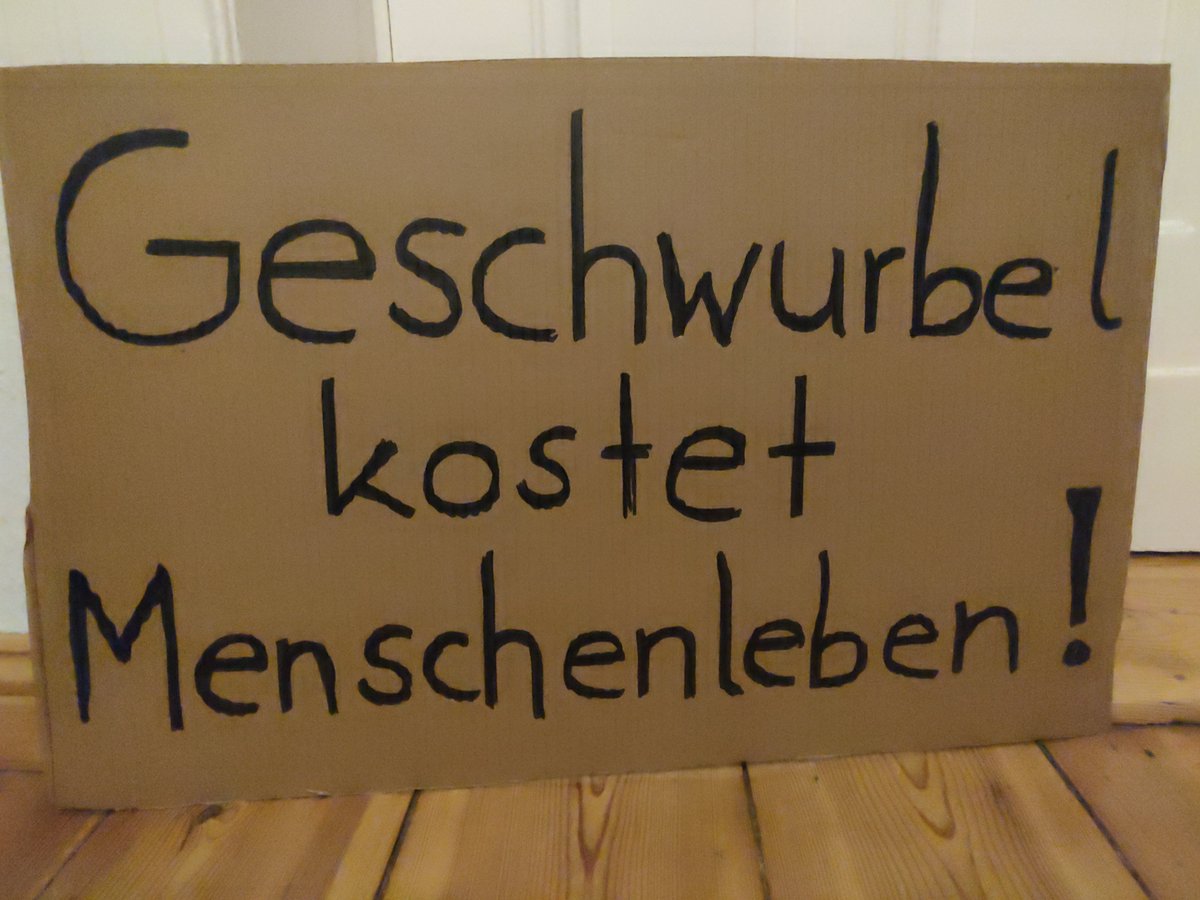 Geschwurbel
kostet
Menschenleben!